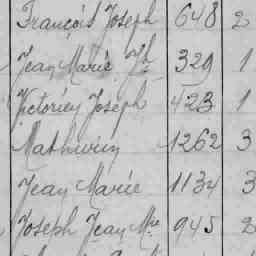 François Joseph 648 2
Jean Marie Th 329 1
Victorien Joseph 423 1
Mathurin 1262 3
Jean Marie 1134 3
Joseph Jean Mie 945 2